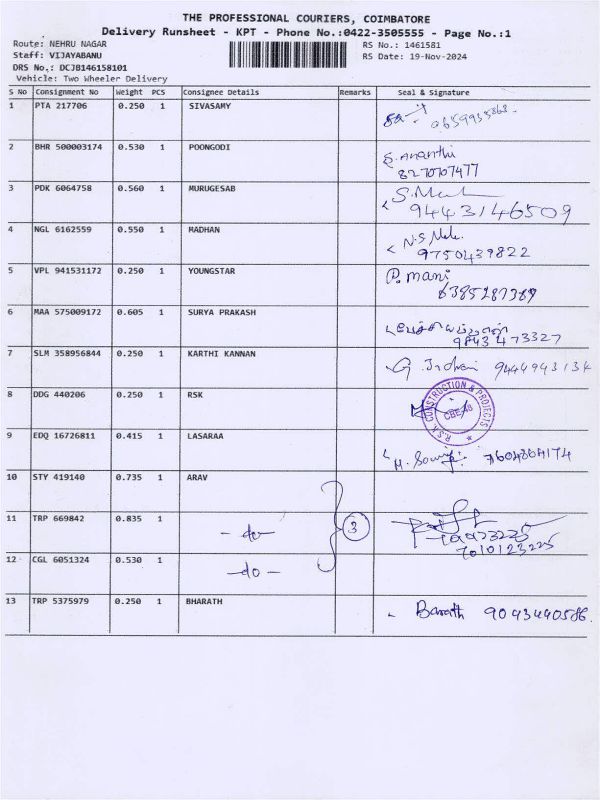 THE PROFESSIONAL COURIERS, COIMBATORE
Delivery Runsheet - KPT - Phone No.:0422-3505555 - Page No.:1
Route: NEHRU NAGAR RS No.: 1461581
Staff: VIJAYABANU RS Date: 19-Nov-2024
DRS No.: DCJB146158101
Vehicle: Two Wheeler Delivery
S No Consignment No Weight PCS Consignee Details Remarks Seal & Signature
1 PTA 217706 0.250 1 SIVASAMY
2 BHR 500003174 0.530 1 POONGODI
S. Ananthi
8270707477
3 PDK 6064758 0.560 1 MURUGESAB
9443146509
4 NGL 6162559 0.550 1 MADHAN
9750439822
5 VPL 941531172 0.250 1 YOUNGSTAR
P. mani
6385287389
6 MAA 575009172 0.605 1 SURYA PRAKASH
9843473327
7 SLM 358956844 0.250 1 KARTHI KANNAN
9444943134
8 DDG 440206 0.250 1 RSK
R.S.K CONSTRUCTION & PROJECTS
CBE-48
9 EDQ 16726811 0.415 1 LASARAA
7604864174
10 STY 419140 0.735 1 ARAV
11 TRP 669842 0.835 1 - do - 3
7010123225
12 CGL 6051324 0.530 1 - do -
13 TRP 5375979 0.250 1 BHARATH Barath 9043440586.